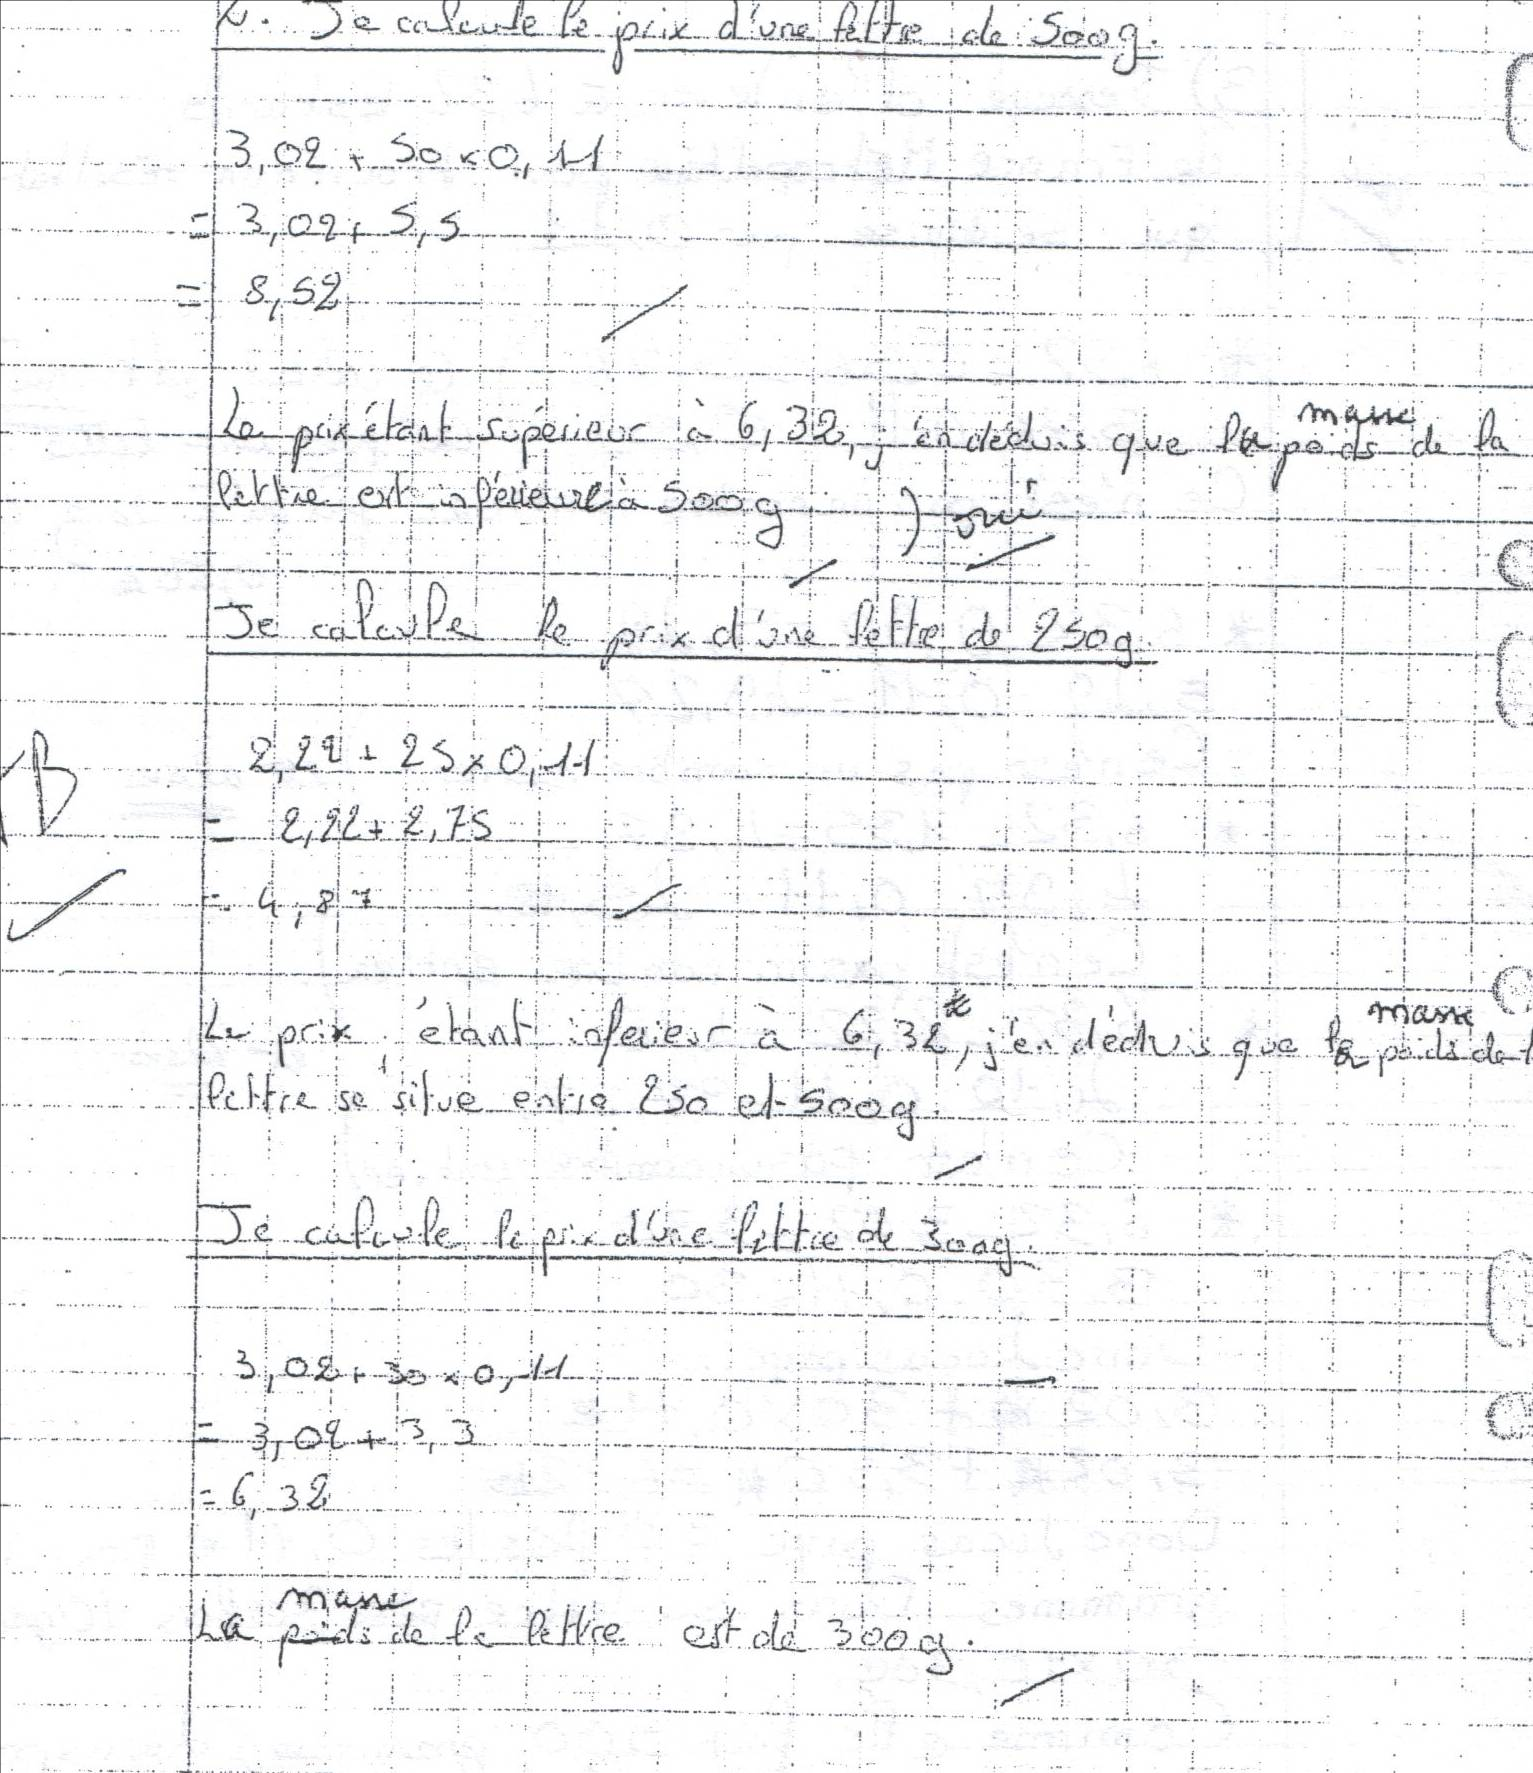 2. Je calcule le prix d'une lettre de 500g.
3,02 + 50 x 0,11
= 3,02 + 5,5
= 8,52
Le prix étant supérieur à 6,32, j'en déduis que la poids masse de la
lettre est inférieure à 500g ) oui
Je calcule le prix d'une lettre de 250g.
2,22 + 25 x 0,11
TB
= 2,22 + 2,75
= 4,87
Le prix étant inferieur à 6,32€, j'en déduis que la poids masse de l
lettre se situe entre 250 et 500g.
Je calcule le prix d'une lettre de 300g.
3,02 + 30 x 0,11
= 3,02 + 3,3
= 6,32
La poids masse de la lettre est de 300g.